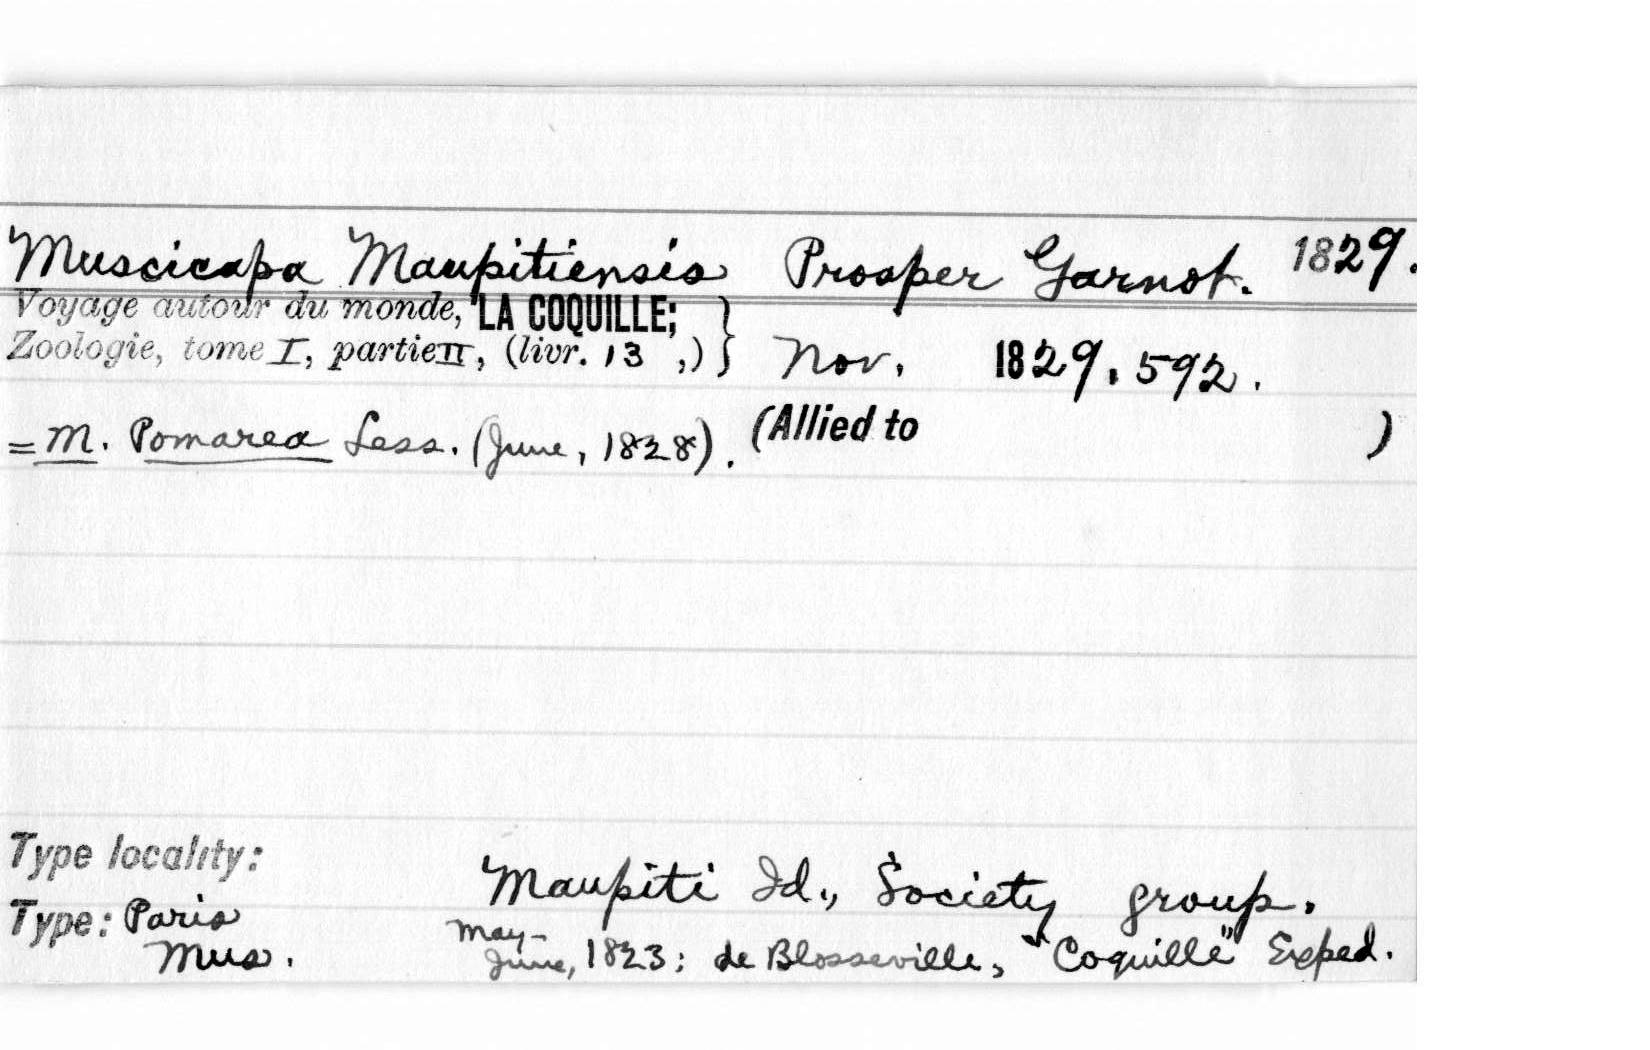 Muscicapa Maupitiensis Prosper Garnot. 1829.
Voyage autour du monde, "LA COQUILLE;
Zoologie, tome I, partie II, (livr. 13 ,) } Nov. 1829, 592.
= M. Pomarea Less. (June, 1828). (Allied to )
Type locality:
Maupiti Id., Society group.
Type: Paris
Mus.
May-
June, 1823; de Blosseville, "Coquille" Exped.